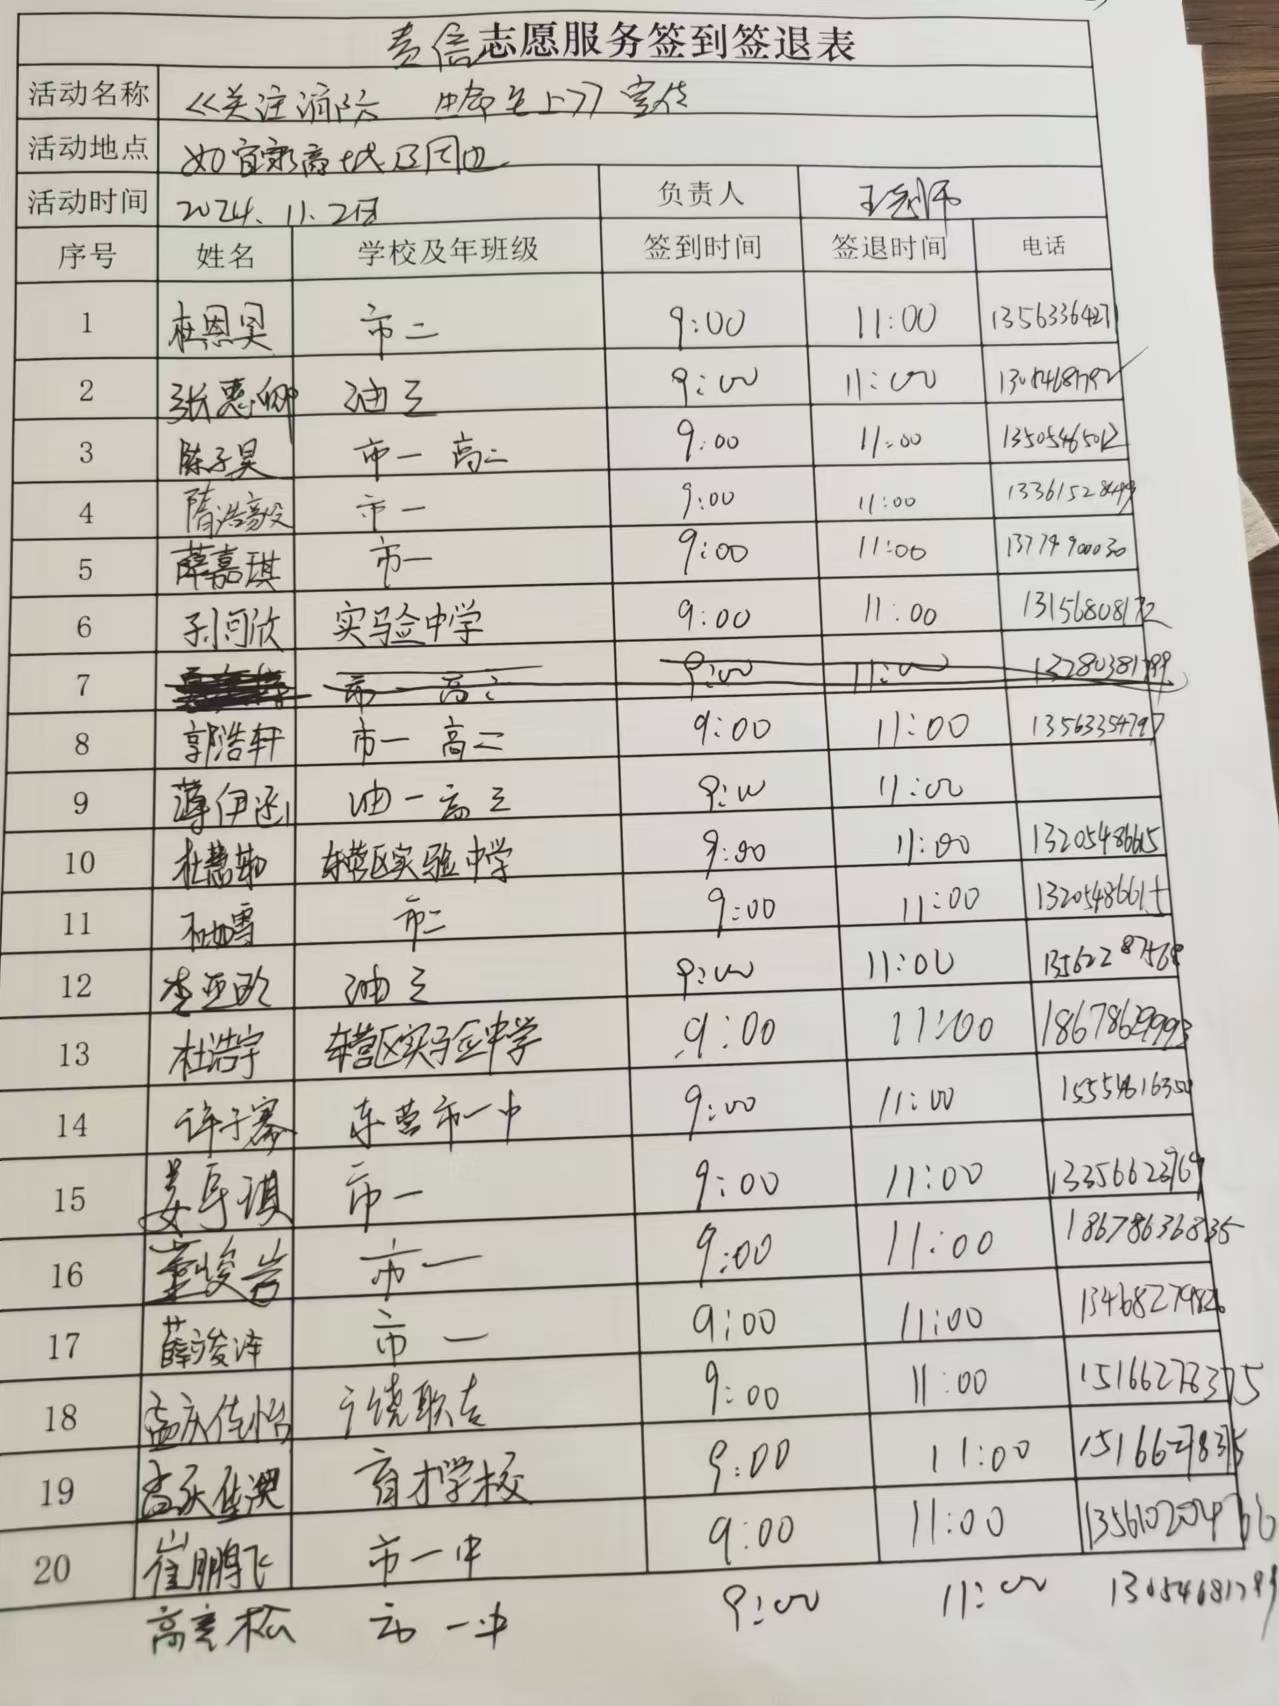 责信志愿服务签到签退表
活动名称 《关注消防 生命至上》宣传
活动地点 如宜家商城及周边
活动时间 2024.11.2日 负责人 王老师
序号 姓名 学校及年班级 签到时间 签退时间 电话
1 杜恩昊 市二 9:00 11:00 13563364271
2 张惠卿 油三 9:00 11:00
3 陈子昊 市一 高二 9:00 11:00 13505465012
4 隋浩毅 市一 9:00 11:00
5 薛嘉琪 市一 9:00 11:00
6 孙可欣 实验中学 9:00 11:00 13156808172
7 市一 高二 9:00 11:00
8 郭浩轩 市一 高二 9:00 11:00 13563354797
9 薄伊涵 油一 高三 9:00 11:00
10 杜慧勤 东营区实验中学 9:00 11:00 13205486615
11 市二 9:00 11:00 13205486615
12 李亚欧 油三 9:00 11:00 13562287568
13 杜浩宇 东营区实验中学 9:00 11:00 18678629993
14 许子骞 东营市一中 9:00 11:00 15554616350
15 姜有琪 市一 9:00 11:00
16 董峻岩 市一 9:00 11:00 18678636835
17 薛竣泽 市一 9:00 11:00
18 孟庆佳怡 广饶职专 9:00 11:00
19 孟庆佳澳 育才学校 9:00 11:00
20 崔鹏飞 市一中 9:00 11:00
高彦松 市一中 9:00 11:00